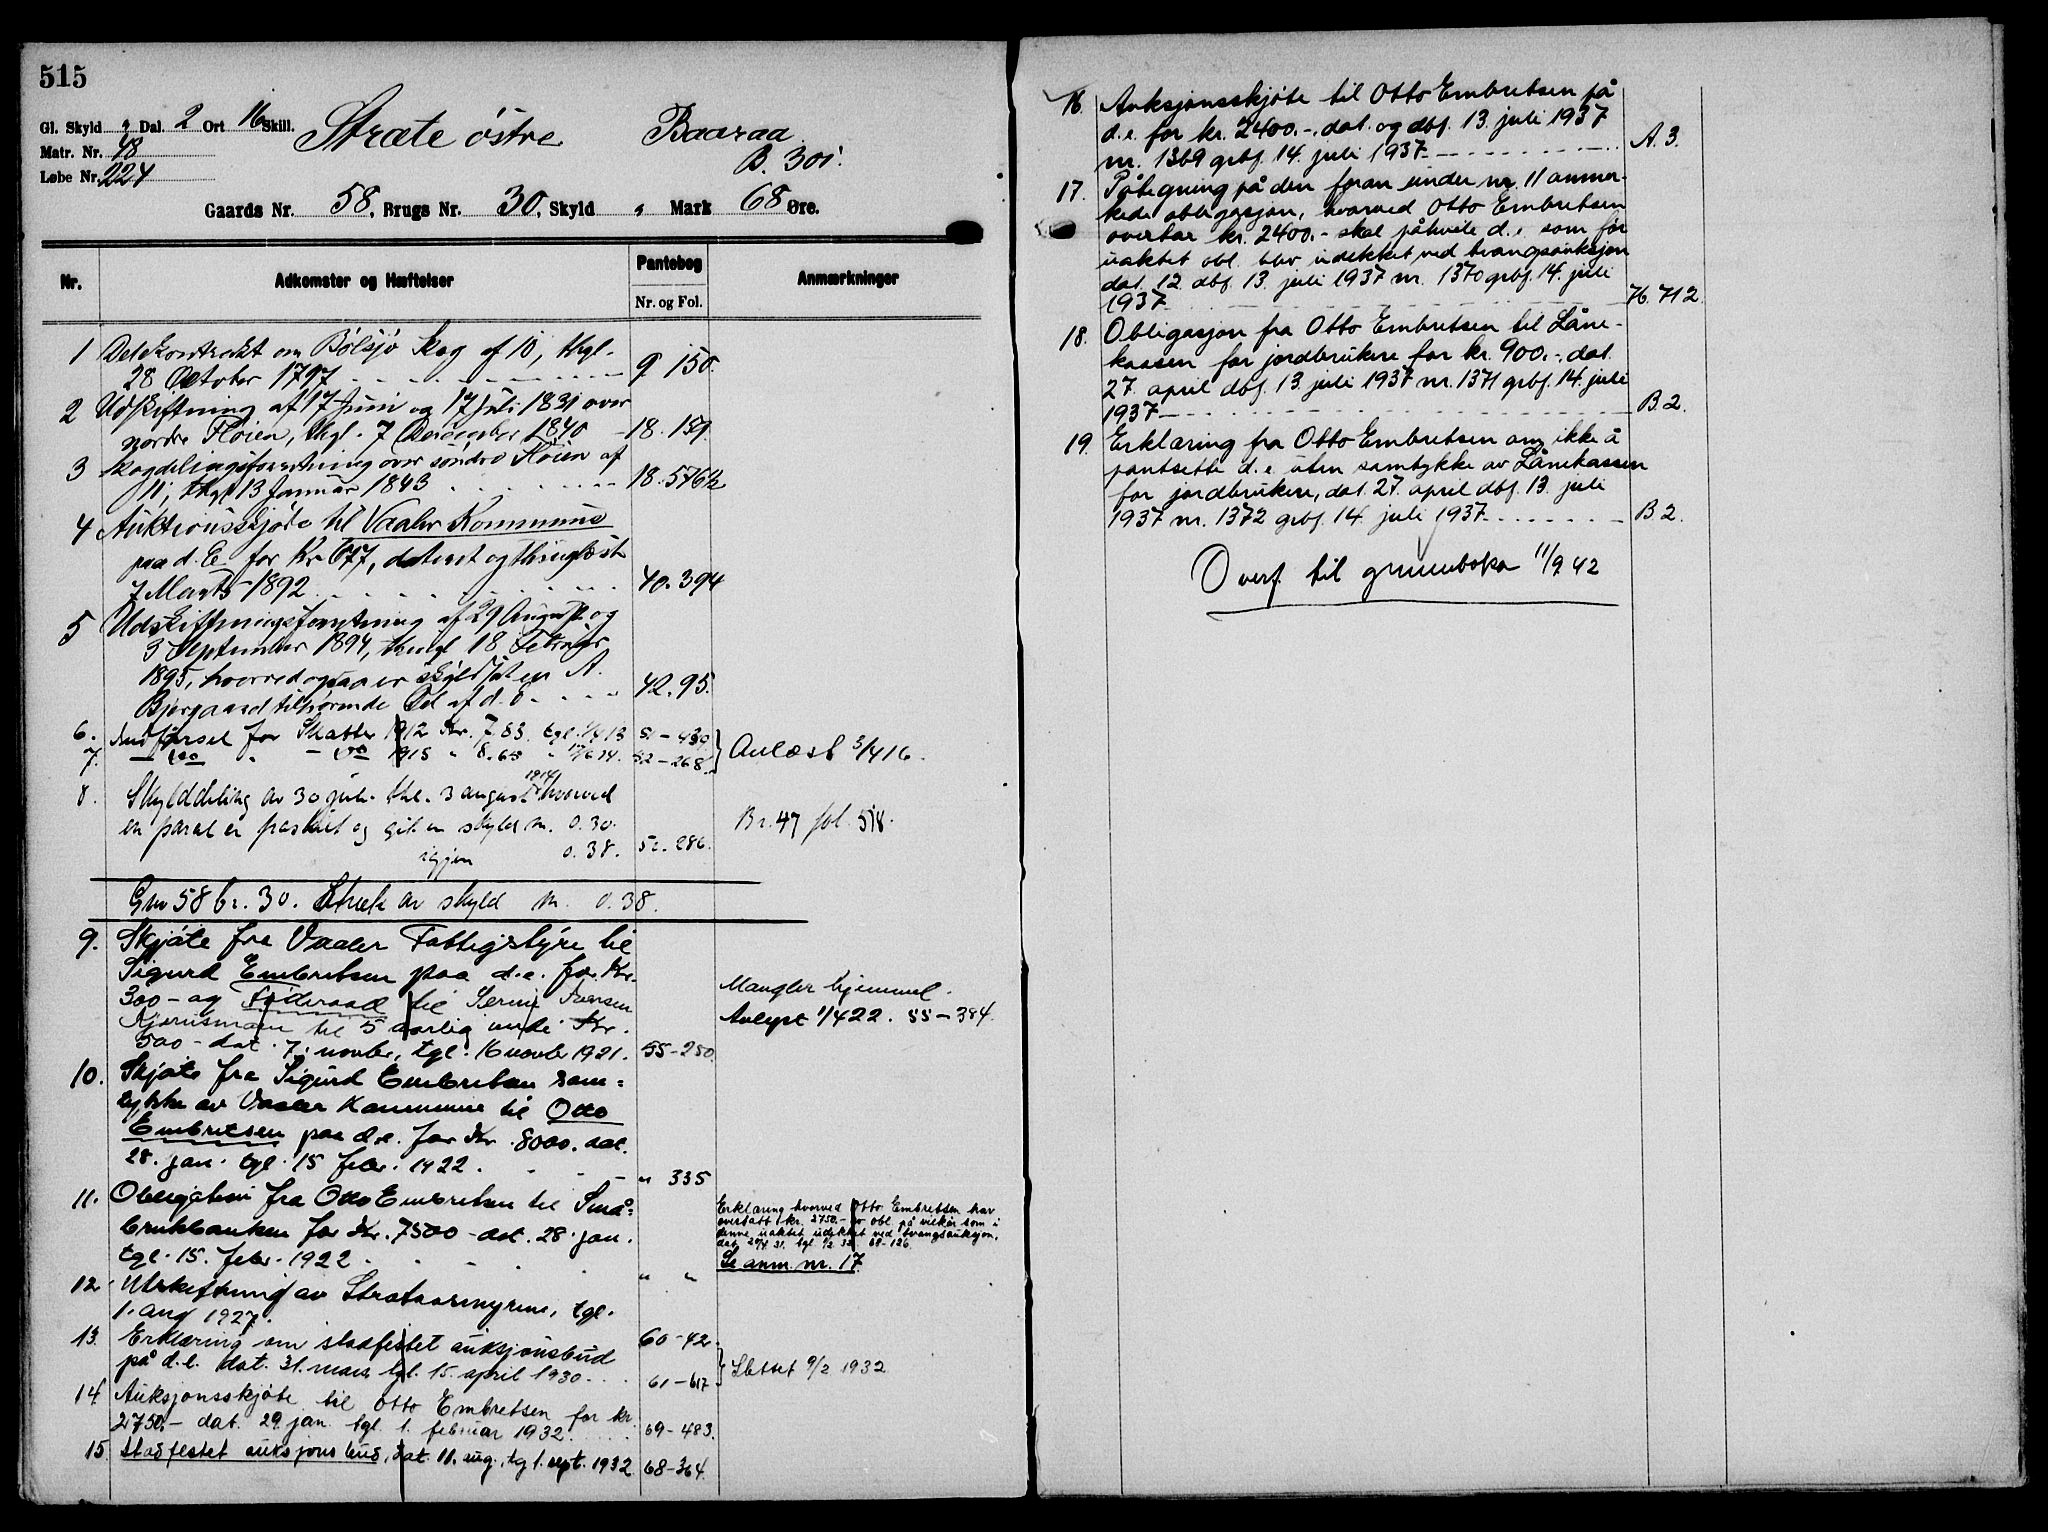 515
Gl. Skyld " Dal. 2 Ort 16 Skill. Stræte østre Baaraa
Matr. Nr. 48 B. 301.
Løbe Nr. 224
Gaards Nr. 58, Brugs Nr. 30, Skyld " Mark 68 Øre.
Nr. Adkomster og Hæftelser Pantebog Anmærkninger
Nr. og Fol.
1 Delekontrakt om Bølsjø Skog af 10, thgl.
28 October 1797 9 150.
2 Udskiftning af 17 Juni og 17 Juli 1831 over
nordre Fløien, thgl. 7 December 1840 18. 159.
3 Skogdelingsforretning over søndre Fløien af
11, thgl 13 Januar 1843 18. 576 1/2
4 Auktionsskjøde til Vaaler Kommune
paa d. E. for Kr 677, dateret og thinglæst
7 Marts 1892 40. 394
5 Udskiftningsforretning af 29 August og
3 September 1894, thingl 18 Februar
1895, hvorved ogsaa er skyldsat en A.
Bjørgaard tilhørende Del af d. E. 42. 95.
6. Udførsel for Skatter 1912 Kr. 7.83. tgl. 1/4 13 51 – 439
7. – do " – do 1913 " 8.65 " 17/6 14. 52 – 268. Avlæst 3/4 16.
8. Skylddeling av 30 juli thl. 3 august 1914 hvorved
en parcel er fraskilt og git en skyld m. 0.30. Br. 47 fol. 518.
igjen 0.38. 52. 286.
Gnr 58 br. 30. Stræte av skyld m. 0.38.
9. Skjøte fra Vaaler Fattigstyre til
Sigurd Embretsen paa d.e. for Kr.
300 – og Føderaad til Serine Iversen Mangler hjemmel.
til 5 aarlig værdi Kr. Avlyst 1/4 22. 55 – 384.
500 – dat. 7. novbr, tgl. 16 novbr 1921. 55 – 250.
10. Skjøte fra Sigurd Embretsen sam=
tykke av Vaaler Kommune til Otto
Embretsen paa d.e. for Kr. 8000. dat.
28. jan. tgl. 15 febr. 1922. " 335
11. Obligation fra Otto Embretsen til Små=
brukbanken for Kr. 7500 – dat. 28. jan.
tgl. 15. febr. 1922 " "
Erklæring hvorved Otto Embretsen har
overtatt kr. 2750.– av obl. på vilkår som i
denne uaktet udekket ved tvangsauksjon,
Se anm. nr. 17.
12 Utskiftning av Strataasmyrene, tgl.
1. aug 1927. 60 – 42
13. Erklæring om stadfestet auksjonsbud
på d.e. dat. 31. mars tgl. 15. april 1930. 61 – 617 Slettet 9/2 1932
14 Auksjonsskjøte til Otto Embretsen for kr.
2750.– dat. 29 jan. tgl. 1. februar 1932. 69 – 483.
15. Stadfestet auksjonsbud, dat. 11. aug. tgl. sept. 1932 68 – 364.
16. Auksjonsskjøte til Otto Embretsen på
d.e. for kr. 2400.–, dat. og dbf. 13. juli 1937
nr. 1369 grbf. 14. juli 1937. A. 3.
17. Påtegning på den foran under nr. 11 anmer-
kede obligasjon, hvorved Otto Embretsen
overtar kr. 2400.– skal påhvile d.e. som før
uaktet obl. blev udekket ved tvangsauksjon
dat. 12. dbf. 13. juli 1937 nr. 1370 grbf. 14. juli
1937 76. 712.
18. Obligasjon fra Otto Embretsen til Låne-
kassen for jordbrukere for kr. 900.–, dat.
27. april dbf. 13. juli 1937 nr. 1371 grbf. 14. juli
1937 B 2.
19. Erklæring fra Otto Embretsen om ikke å
pantsette d.e. uten samtykke av Lånekassen
for jordbrukere, dat. 27. april dbf. 13. juli
1937 nr. 1372 grbf. 14. juli 1937. B 2.
Overf. til grunnboka 11/9 42